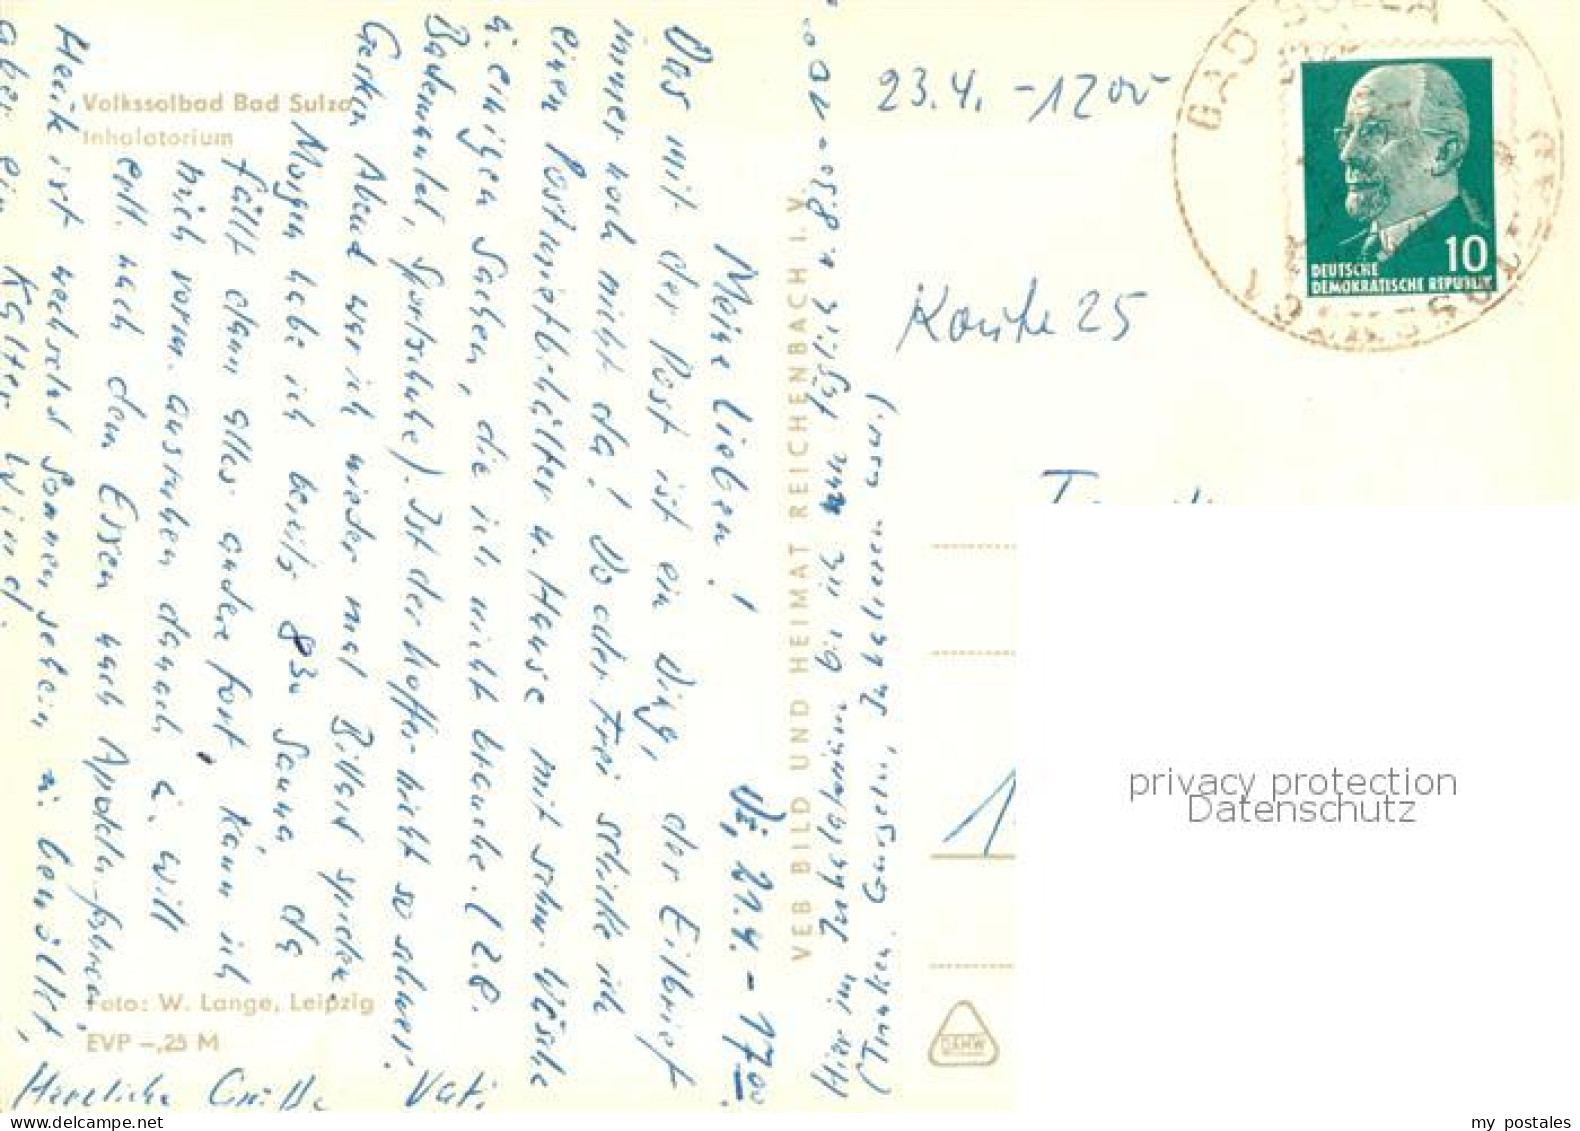 Volkssolbad Bad Sulza
Inhalatorium
Di, 21.4. - 17⁰⁰
Meine Lieben!
Das mit der Post ist ein Ding, der Eilbrief
immer noch nicht da! Do oder Frei schicke ich
einen Postmietbehälter n. Hause mit schm. Wäsche
u. einigen Sachen, die ich nicht brauche. (z.B.
Bademantel, Sportschuhe). Ist der Koffer nicht so schwer.
Gestern Abend war ich wieder mal Billard spielen.
Morgen habe ich bereits 8³⁰ Sauna, da
fällt dann alles andere fort, kann ich
mich vorm. ausruhen danach u. will
evtl. nach dem Essen nach Apolda fahren.
Heute ist wechselnd Sonnenschein u. bewölkt,
aber ein kalter Wind.
Herzliche Grüße Vati
Foto: W. Lange, Leipzig
EVP –,25 M
VEB BILD UND HEIMAT REICHENBACH I. V.
Hier im Inhalatorium bin ich nun täglich v. 8³⁰ - 10⁰⁰
(Trinken, Gurgeln, Inhalieren usw.)
23.4. - 12⁰⁰
Karte 25
BAD SULZA
10
DEUTSCHE
DEMOKRATISCHE REPUBLIK
DAMW
privacy protection
Datenschutz
my postales